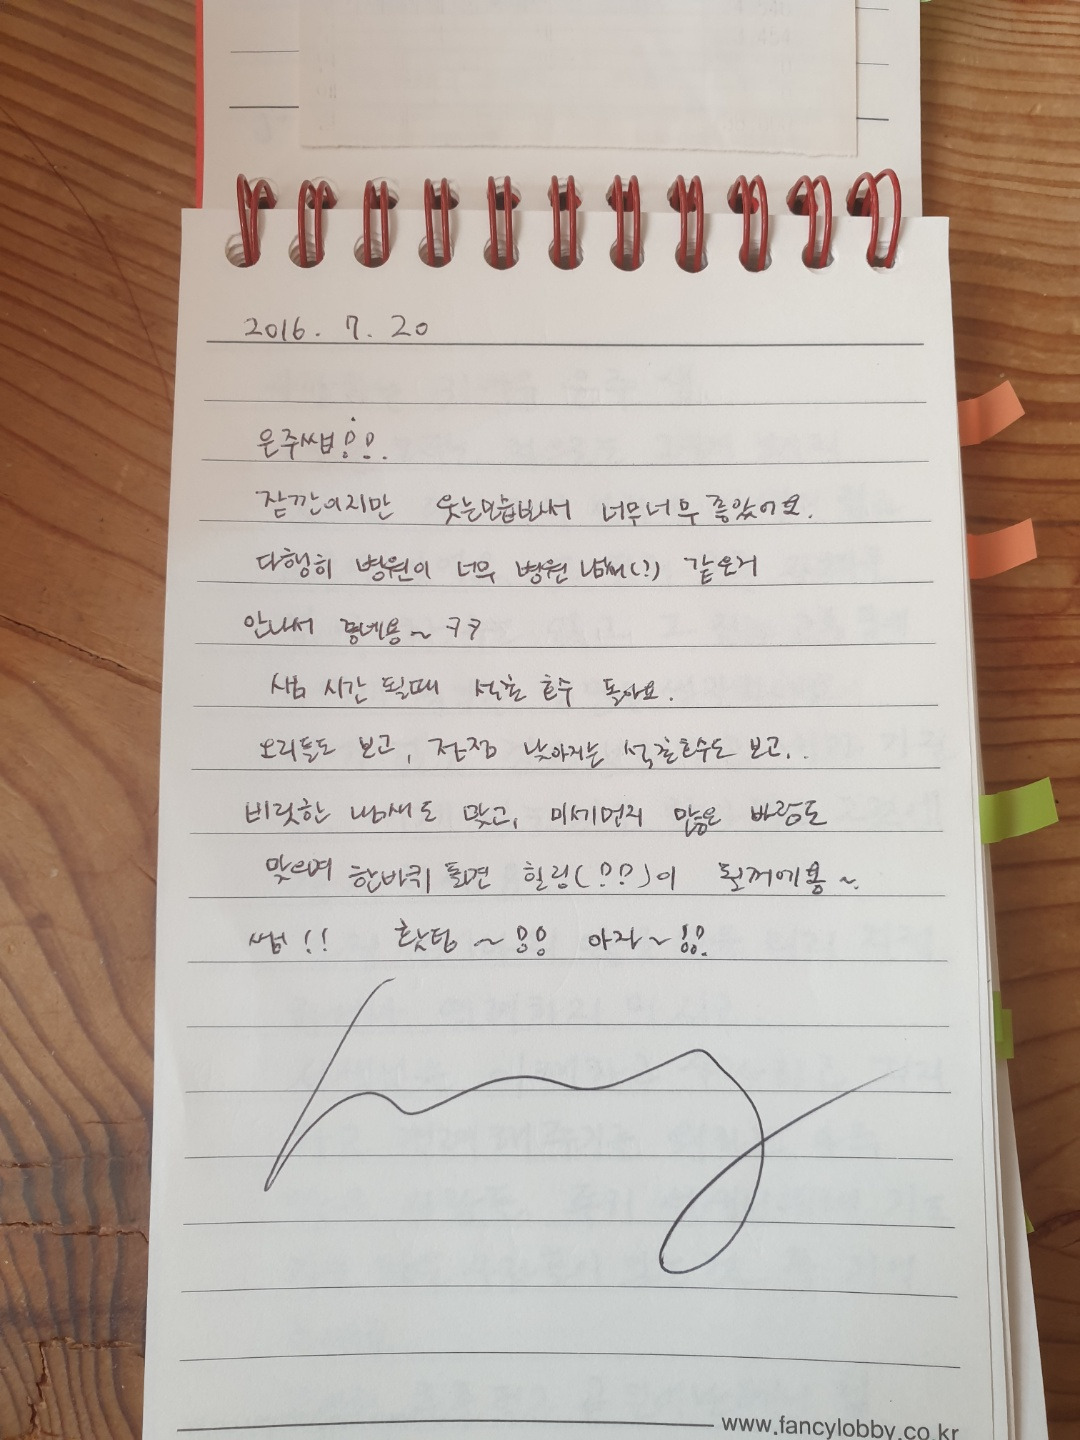 2016. 7. 20
은주쌤!!
잠깐이지만 웃는모습봐서 너무너무 좋았어요.
다행히 병원이 너무 병원 냄쎄(?) 같은거
안나서 경네용~ ㅋㅋ
쌤 시간 될때 석촌 호수 돌아요.
오리들도 보고, 점점 낮아지는 석촌호수도 보고..
비릿한 냄새도 맞고, 미세먼지 많은 바람도
맞으며 한바퀴 돌면 힐링(??)이 될꺼에용~
쌤!! 홧팅~!! 아자~!!
www.fancylobby.co.kr